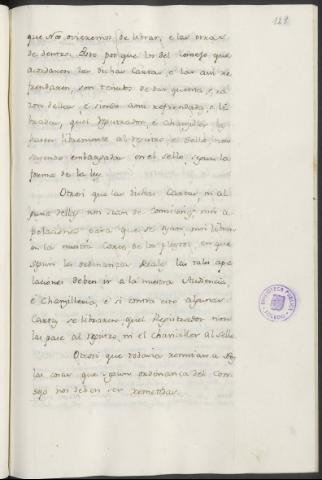 128
que Nos ovieremos de librar, e las otras
de dentro. Pero por que los del Consejo que
acordaren las dichas Cartas e las assi re
frendaren, son tenudos de dar quenta, e ra
zon dellas, e siendo assi refrendada, e li
brada, quel Registrador, e Chanciller la
pasen libremente al registro e sello, non
seyendo embargada en el sello, segun la
forma de la ley
Otrosi que las dichas Cartas, ni al
guna dellas non sean de comision, nin a
pelaciones para que se oyan, nin libren
en la nuestra Corte de los pleytos, en que
segun las ordenanzas Reales las tales ape
laciones deben ir a la nuestra Audiencia,
e Chancilleria, e si contra esto algunas
Cartas se libraren, quel Registrador non
las pase al registro, ni el Chanciller al sello
Otrosi que todavia remitan a
las cosas que segun ordenanza del Con
sejo nos deben ser remetidas.
BIBLIOTECA PUBLICA
TOLEDO